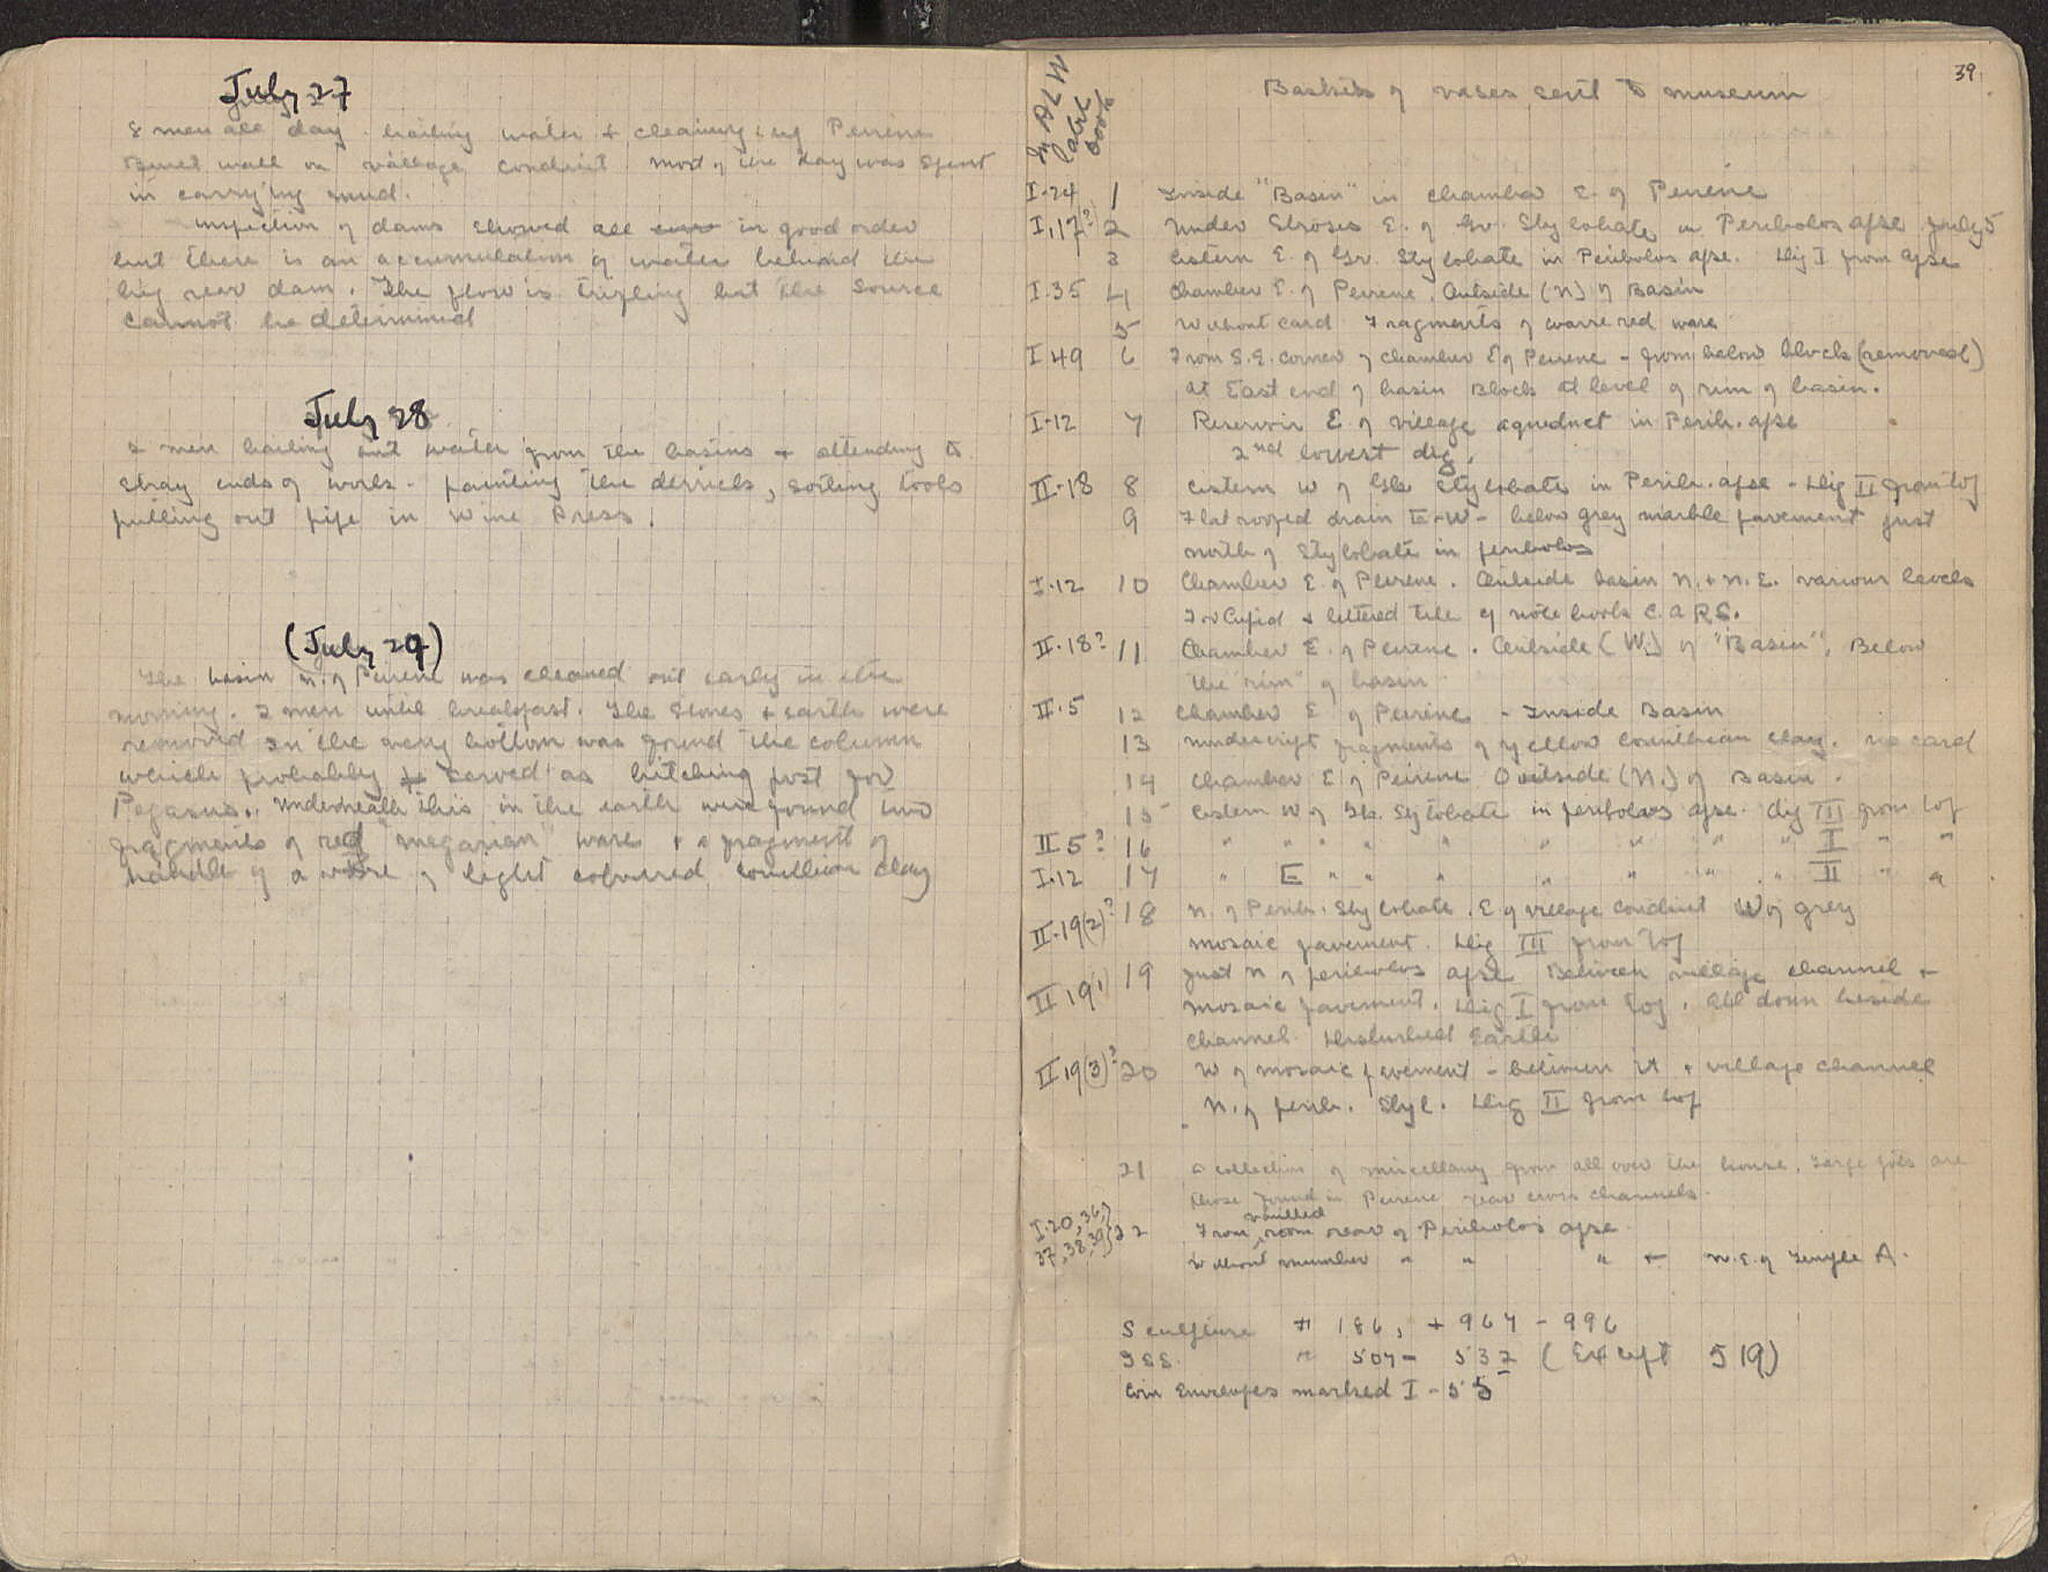 July 27
8 men all day bailing water & cleaning up Peirene
Built wall on village conduit most of the day was spent
in carrying mud.
Inspection of dams showed all in good order
but there is an accumulation of water behind the
big rear dam. The flow is trifling but the source
cannot be determined
July 28
2 men bailing out water from the basins & attending to
stray ends of work - painting the derricks, sorting tools
pulling out pipe in Wine Press.
(July 29)
The basin n. of Peirene was cleaned out early in the
morning. 2 men until breakfast. The stones & earth were
removed In the very bottom was found the column
which probably served as hitching post for
Pegasus. Underneath this in the earth were found two
fragments of red "megarian" ware & a fragment of
handle of a of light coloured corinthian clay
39
In ALW
later
book
Baskets of vases sent to museum
I-24 1 Inside "Basin" in chamber E. of Peirene
I,17? 2 Under Stroses E. of Gr. Stylobate in Peribolos apse July 5
3 Cistern E. of Gr. Stylobate in Peribolos apse. Dig I from apse
I.35 4 Chamber E. of Peirene. Outside (N) of Basin
5 Without card Fragments of coarse red ware
I 49 6 From S.E. corner of chamber E of Peirene - from below block (removed)
at East end of basin Block at level of rim of basin.
I-12 7 Reservoir E. of village aqueduct in Perib. apse
2nd lowest dig.
II-18 8 Cistern W of Gk Stylobate in Perib. apse - Dig II from top
9 Flat roofed drain E-W - below grey marble pavement just
north of Stylobate in peribolos
I-12 10 Chamber E. of Peirene. Outside basin N. & N.E. various levels
For Cupid & lettered tile cf note book C.a R.S.
II-18? 11 Chamber E. of Peirene. Outside (W.) of "Basin", Below
the "rim" of basin
II-5 12 Chamber E of Peirene - Inside Basin
13 nondescript fragments of yellow Corinthian clay. no card
14 Chamber E of Peirene Outside (N.) of Basin.
15 Cistern W of Gk. Stylobate in peribolos apse. Dig III from top
II 5? 16 " " " " " " " " " I " "
I.12 17 " E " " " " " " " II " "
II-19(2)? 18 N. of Perib. Stylobate. E. of village conduit W of grey
mosaic pavement. Dig III from top
II 19(1) 19 Just N of peribolos apse Between village channel &
mosaic pavement. Dig I from top. All down beside
channel. Disturbed Earth
II 19(3)? 20 W of mosaic pavement - between it & village channel
N. of perib. Styl. Dig II from top
21 a collection of miscellany from all over the house. Large pots are
those found in Peirene rear cross channels.
I-20, 36, 37, 38, 39} 22 From vaulted room rear of Peribolos apse
Without number " " " N.E. of Temple A.
Sculpture # 186, + 967 - 996
ISS. " 507 - 537 (Except 519)
Coin Envelopes marked I - 55